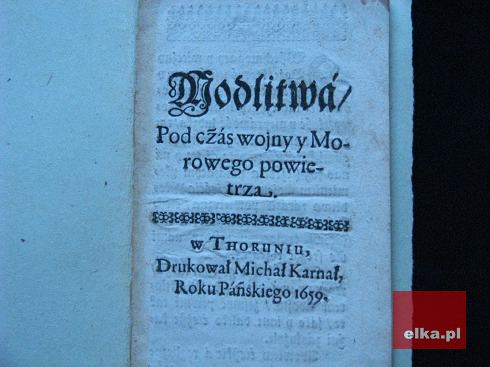 Modlitwá/
Pod cżás wojny y Mo-
rowego powie-
trza.
w THORUNIU,
Drukował Michał Karnał,
Roku Páńskiego 1659.
elka.pl